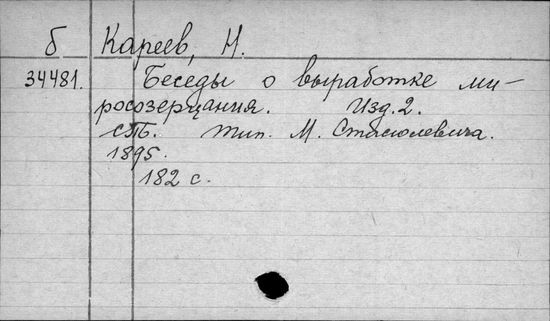 б Кареев, Н.
34481. Беседы о выработке ми-
росозерцания. Изд. 2.
СПБ. тип. М. Стасюлевича.
1895.
182 с.